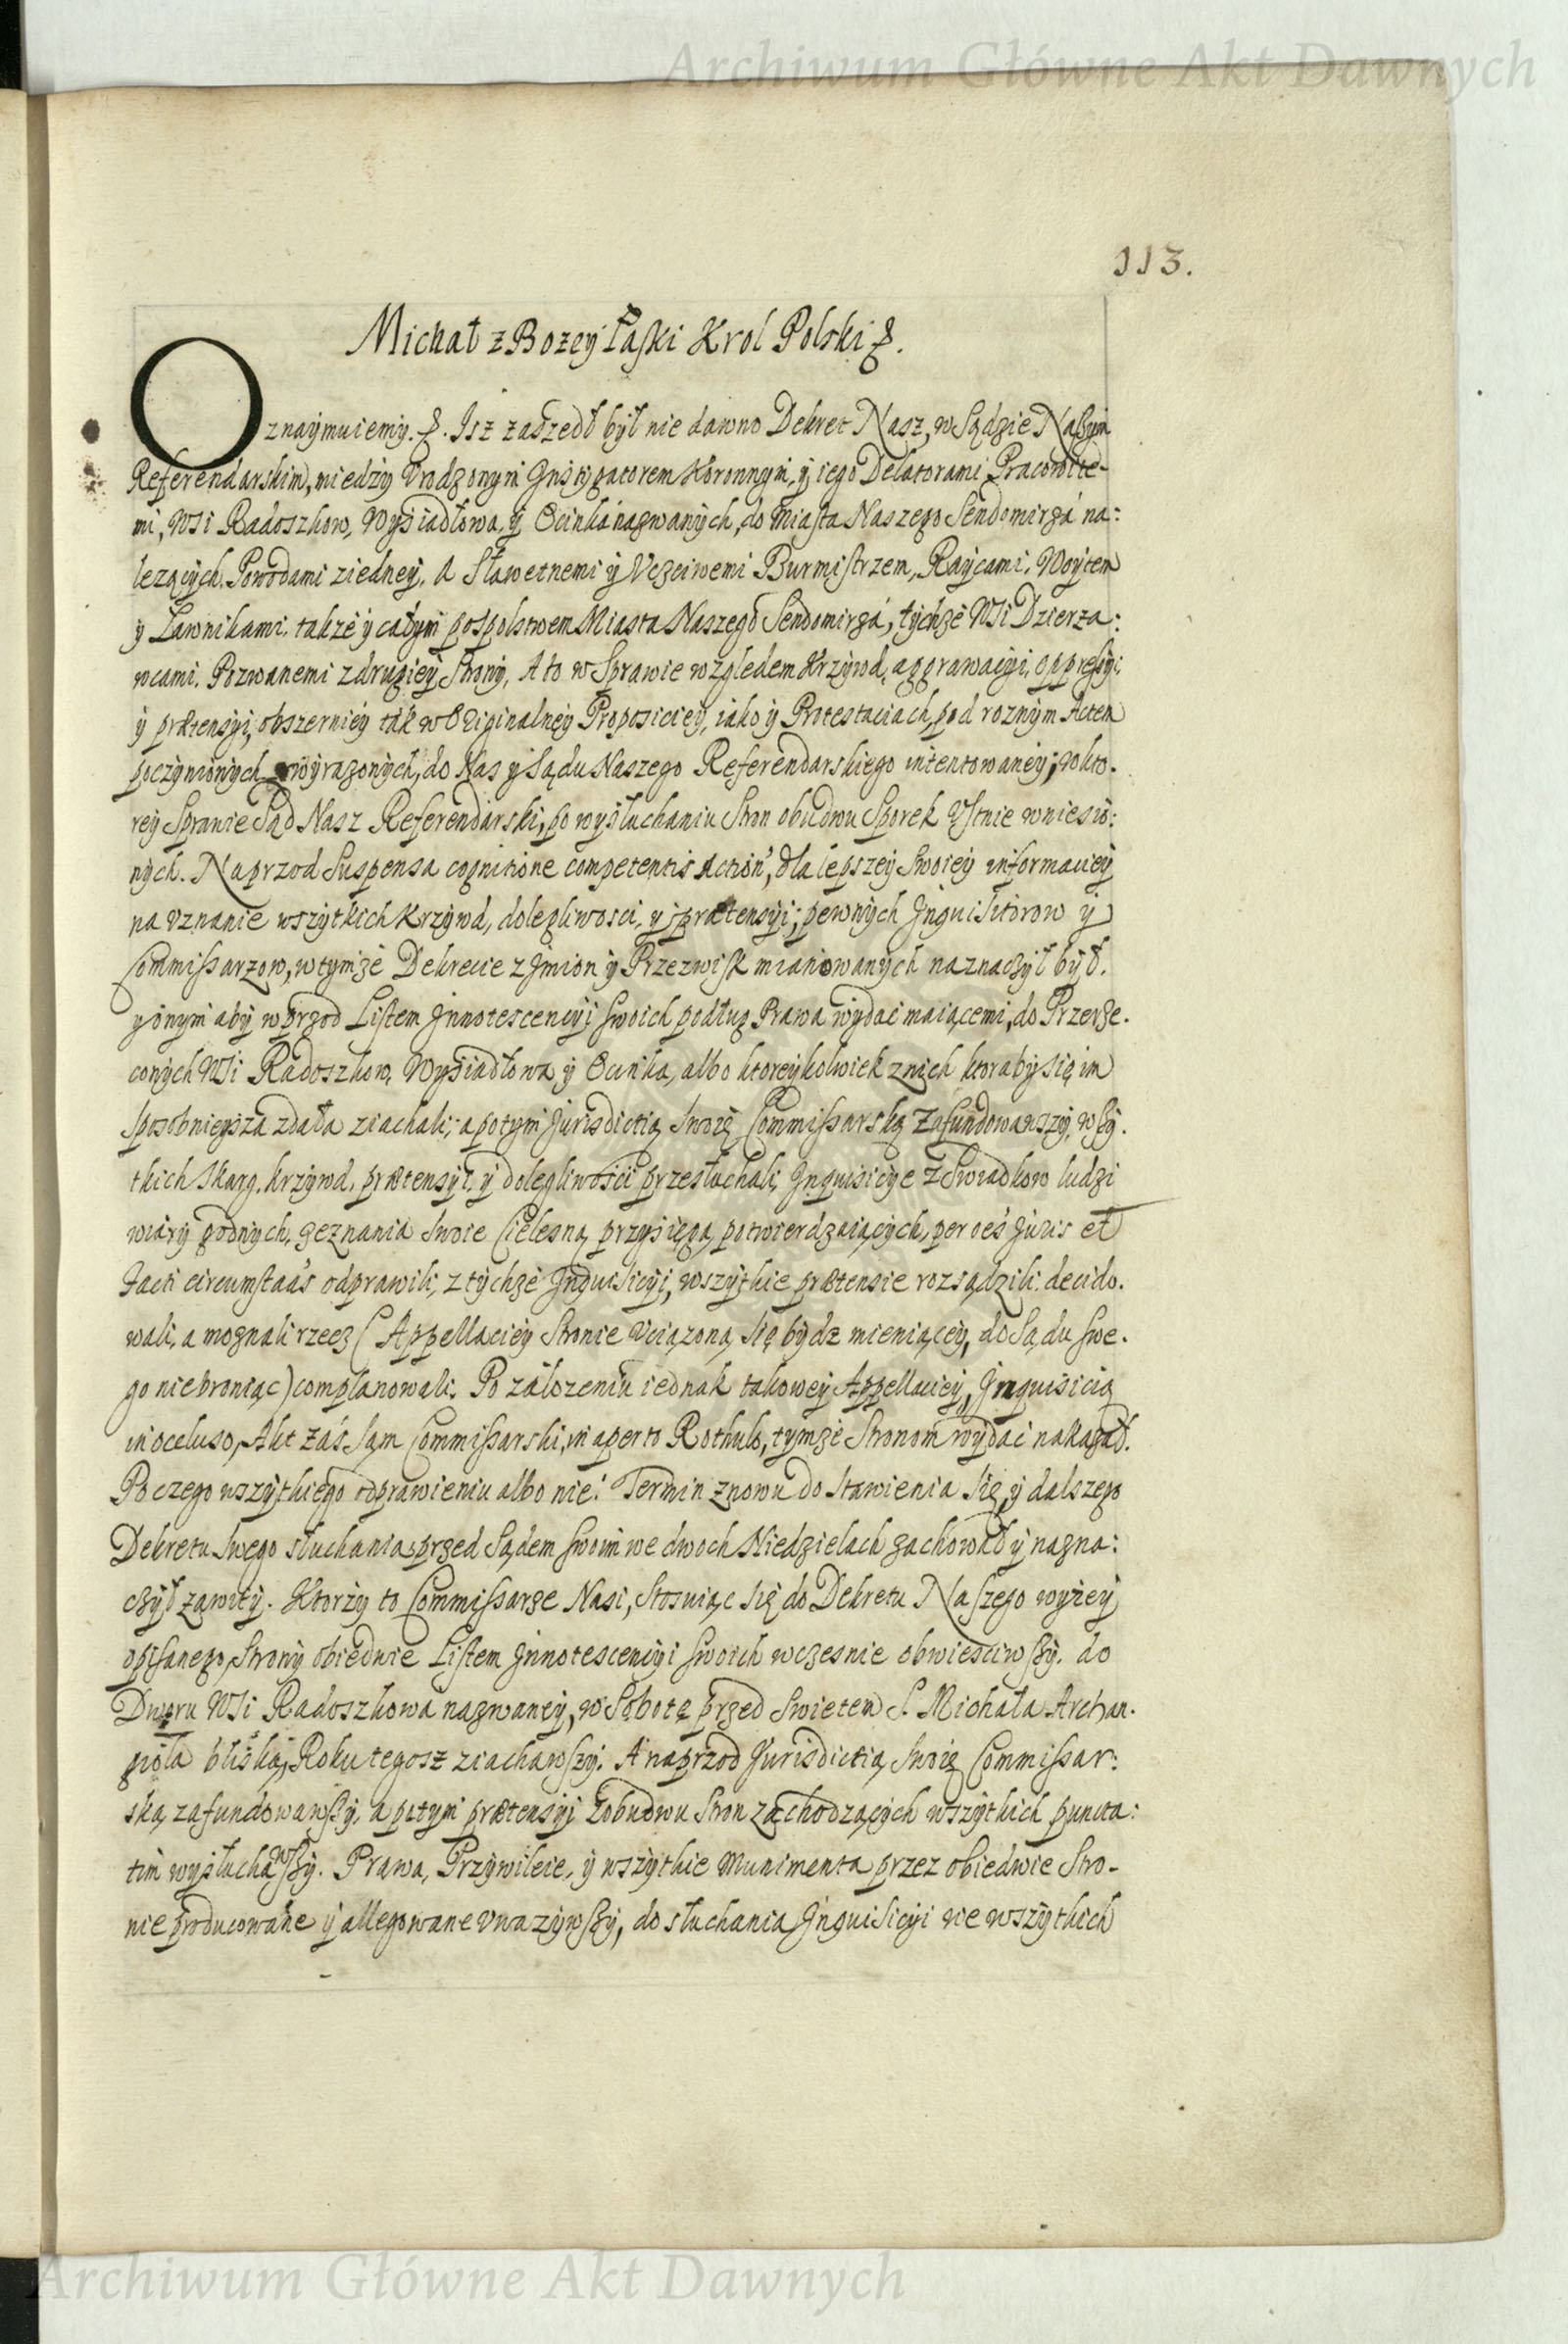 Archiwum Główne Akt Dawnych
113.
Michał z Bozey Łaski Krol Polski &.
Oznaymuiemy. &. Isz zaszedł był nie dawno Dekret Nasz, w Sądzie Naszym
Referendarskim, miedzy Vrodzonym Instygatorem Koronnym, y iego Delatorami Pracowite-
mi, Wsi Radoszkow, Wysiadłowa, y Ocinka nazwanych, do Miasta Naszego Sendomirza na:
lezących. Powodami z iedney. A Sławetnemi y Vczciwemi Burmistrzem, Raycami, Woytem
y Ławnikami, takze y całym pospolstwem Miasta Naszego Sendomirza, tychze Wsi Dzierza:
wcami. Pozwanemi z drugiey Strony, A to w Sprawie względem Krzywd, aggrawacyi, oppressyi:
y prætensyi, obszerniey ták w Originalney Proposiciey, iako y Protestaciach, pod roznym Actem
poczynionych wyrazonych, do Nas y Sądu Naszego Referendarskiego intentowaney; w kto.
rey Sprawie Sąd Nasz Referendarski, po wysłuchaniu Stron obudwu Sporek Vstnie wniesio:
nych. Naprzod Suspensa cognitione competentis Action', dla lepszey Swoiey informaciey
na vznanie wszytkich Krzywd, dolegliwosci, y prætensyi; pewnych Inquisitorow y
Commissarzow, w tymze Dekrecie z Imion y Przezwisk mianowanych naznaczył był.
y onym aby wprzod Listem Innotescencyi swoich podług Prawa wydac maiącemi, do Przerze.
conych Wsi Radoszkow, Wysiadłowa y Ocinka, albo ktoreykolwiek z nich ktoraby się im
sposobnieysza zdała ziachali; a potym Jurisdictią Swoię Commissarską zafundowawszy, wszy.
tkich Skarg, krzywd, prætensyi, y dolegliwości przesłuchali, Inquisicye z Swiadkow ludzi
wiary godnych, zeznania Swoie Cielesną przysięgą potwierdzaiących, per oes Juris et
Facti circumstaas odprawili, z tychze Inquisicyi, wszytkie prætensie rozsądzili, decido.
wali, a moznali rzecz (Appellaciey Stronie Vciązoną się bydz mieniącey, do Sądu swe.
go niebroniąc) complanowali. Po załozeniu iednak takowey Appellaciey, Inquisicią
in ocluso, Akt zaś sam Commissarski, in aperto Rothulo, tymze Stronom wydac nakazał.
Po czego wszytkiego odprawieniu albo nie: Termin znowu do Stawienia się, y dalszego
Dekretu Swego słuchania, przed Sądem swoim we dwoch Niedzielach zachował y nazna:
czył zawity. Ktorzy to Commissarze Nasi, Stosuiąc się do Dekretu Naszego wyzey
opisanego, Strony obiedwie Listem Innotescencyi swoich wczesnie obwiesciwszy. do
Dworu Wsi Radoszkowa nazwaney, w Sobotę przed Swietem S. Michała Archan.
gioła bliską, Roku tegosz ziachawszy. A naprzod Jurisdictią Swoię Commissar:
ską zafundowawszy, a potym prætensyi z obudwu Stron zachodzących wszytkich puncta:
tim wysłuchawszy. Prawa, Przywileie, y wszytkie Munimenta przez obiedwie Stro-
nie producowane y allegowane vwazywszy, do słuchania Inquisicyi we wszytkich
Archiwum Główne Akt Dawnych